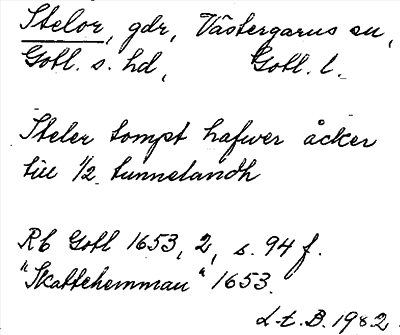 Stelor, gdr, Västergarns sn,
Gotl. s. hd, Gotl. l.
Steler tompt hafwer åcker
till 1/2 tunnelandh
Rb Gotl 1653, 2, s. 94 f.
"Skattehemman" 1653.
L.t.B. 1982